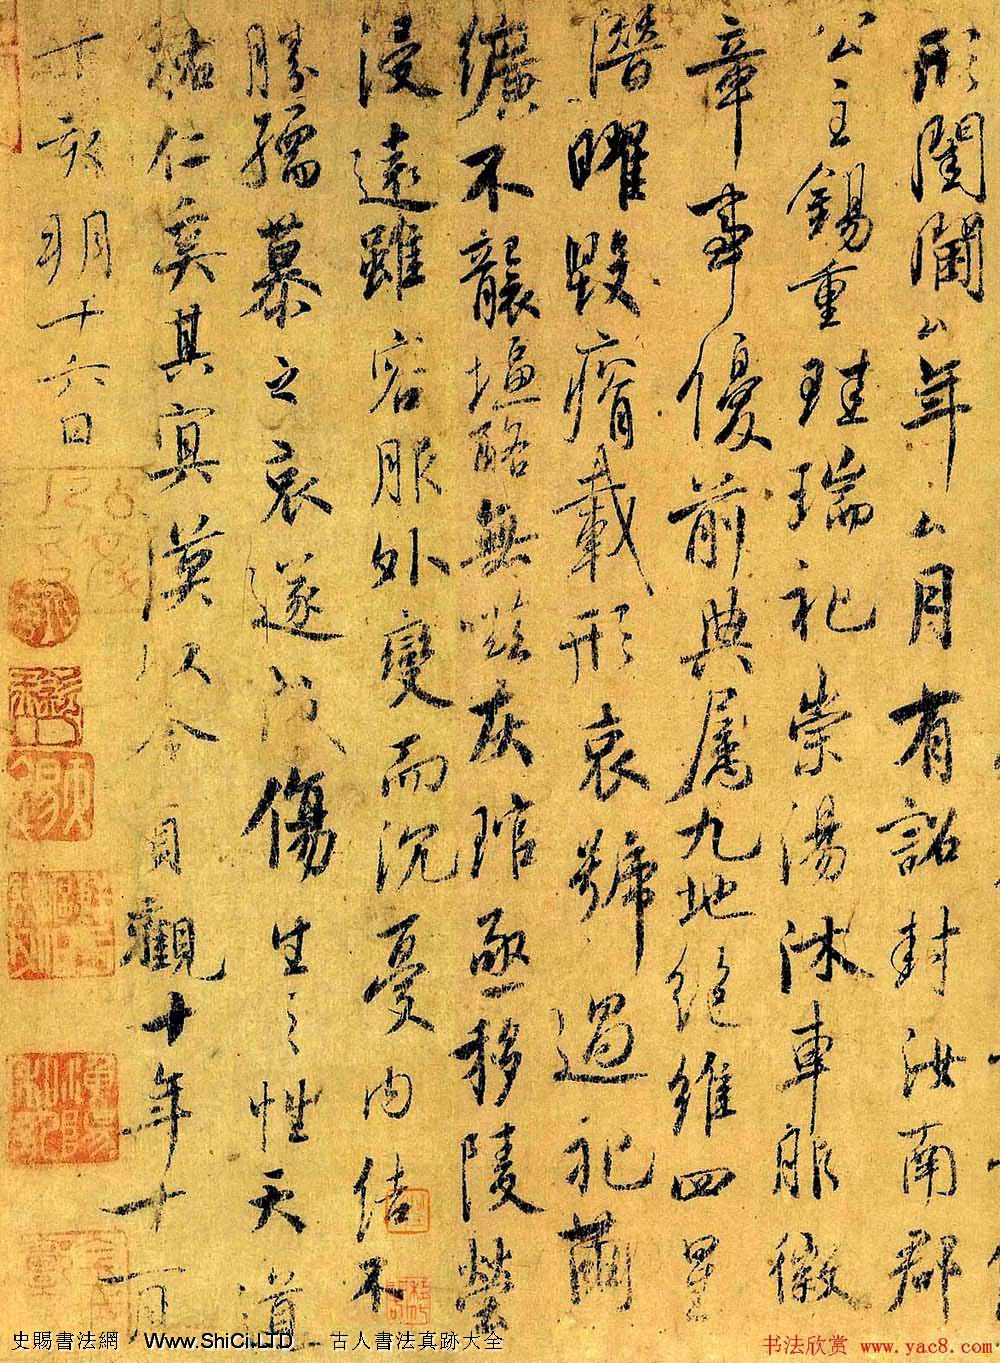 形闺闱厶年厶月有詔封汝南郡
公主錫重珪瑞祀崇湯沐車服徽
章事優前典屬九地絶維四星
潛曜毀瘠載形哀號過礼繭
纊不襲塩酪無嗞灰琯亟移陵塋
浸遠雖容服外變而沉憂内結不
勝孺慕之哀遂伐傷生之性天道
祐仁奚其冥漠以今貞觀十年十一月
丁亥朔十六日
史賜書法網 Www.ShiCi.LTD 古人書法真跡大全
书法欣赏 www.yac8.com